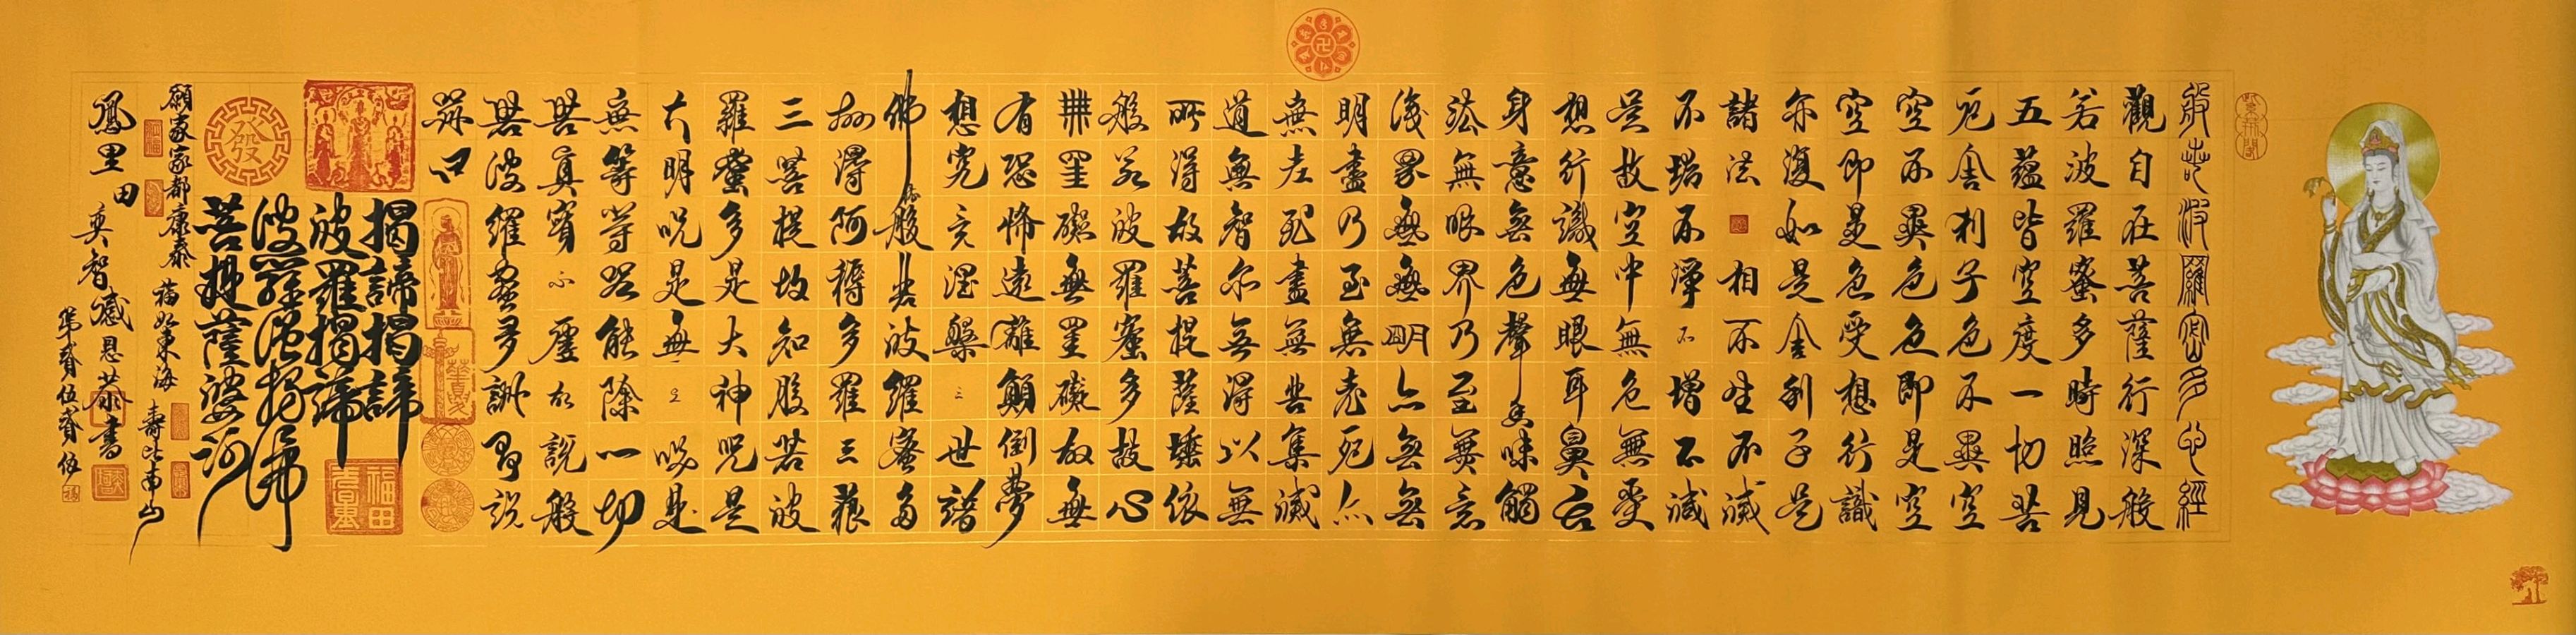 般若波羅密多心經
觀自在菩薩行深般
若波羅蜜多時照見
五蘊皆空度一切苦
厄舍利子色不異空
空不異色色即是空
空即是色受想行識
亦復如是舍利子是
諸法相不生不滅
不垢不淨不增不減
是故空中無色無受
想行識無眼耳鼻舌
身意無色聲香味觸
法無眼界乃至無意
識界無無明亦無無
明盡乃至無老死亦
無老死盡無苦集滅
道無智亦無得以無
所得故菩提薩埵依
般若波羅蜜多故心
無罣礙無罣礙故無
有恐怖遠離顛倒夢
想究竟涅槃三世諸
佛依般若波羅蜜多
故得阿耨多羅三藐
三菩提故知般若波
羅蜜多是大神咒是
大明咒是無上咒是
無等等咒能除一切
苦真實不虛故說般
若波羅蜜多咒即說
咒曰
揭諦揭諦
波羅揭諦
波羅僧揭諦
菩提薩婆訶
願家家都康泰 福如東海 壽比南山
鳳里田 奕智感恩恭書